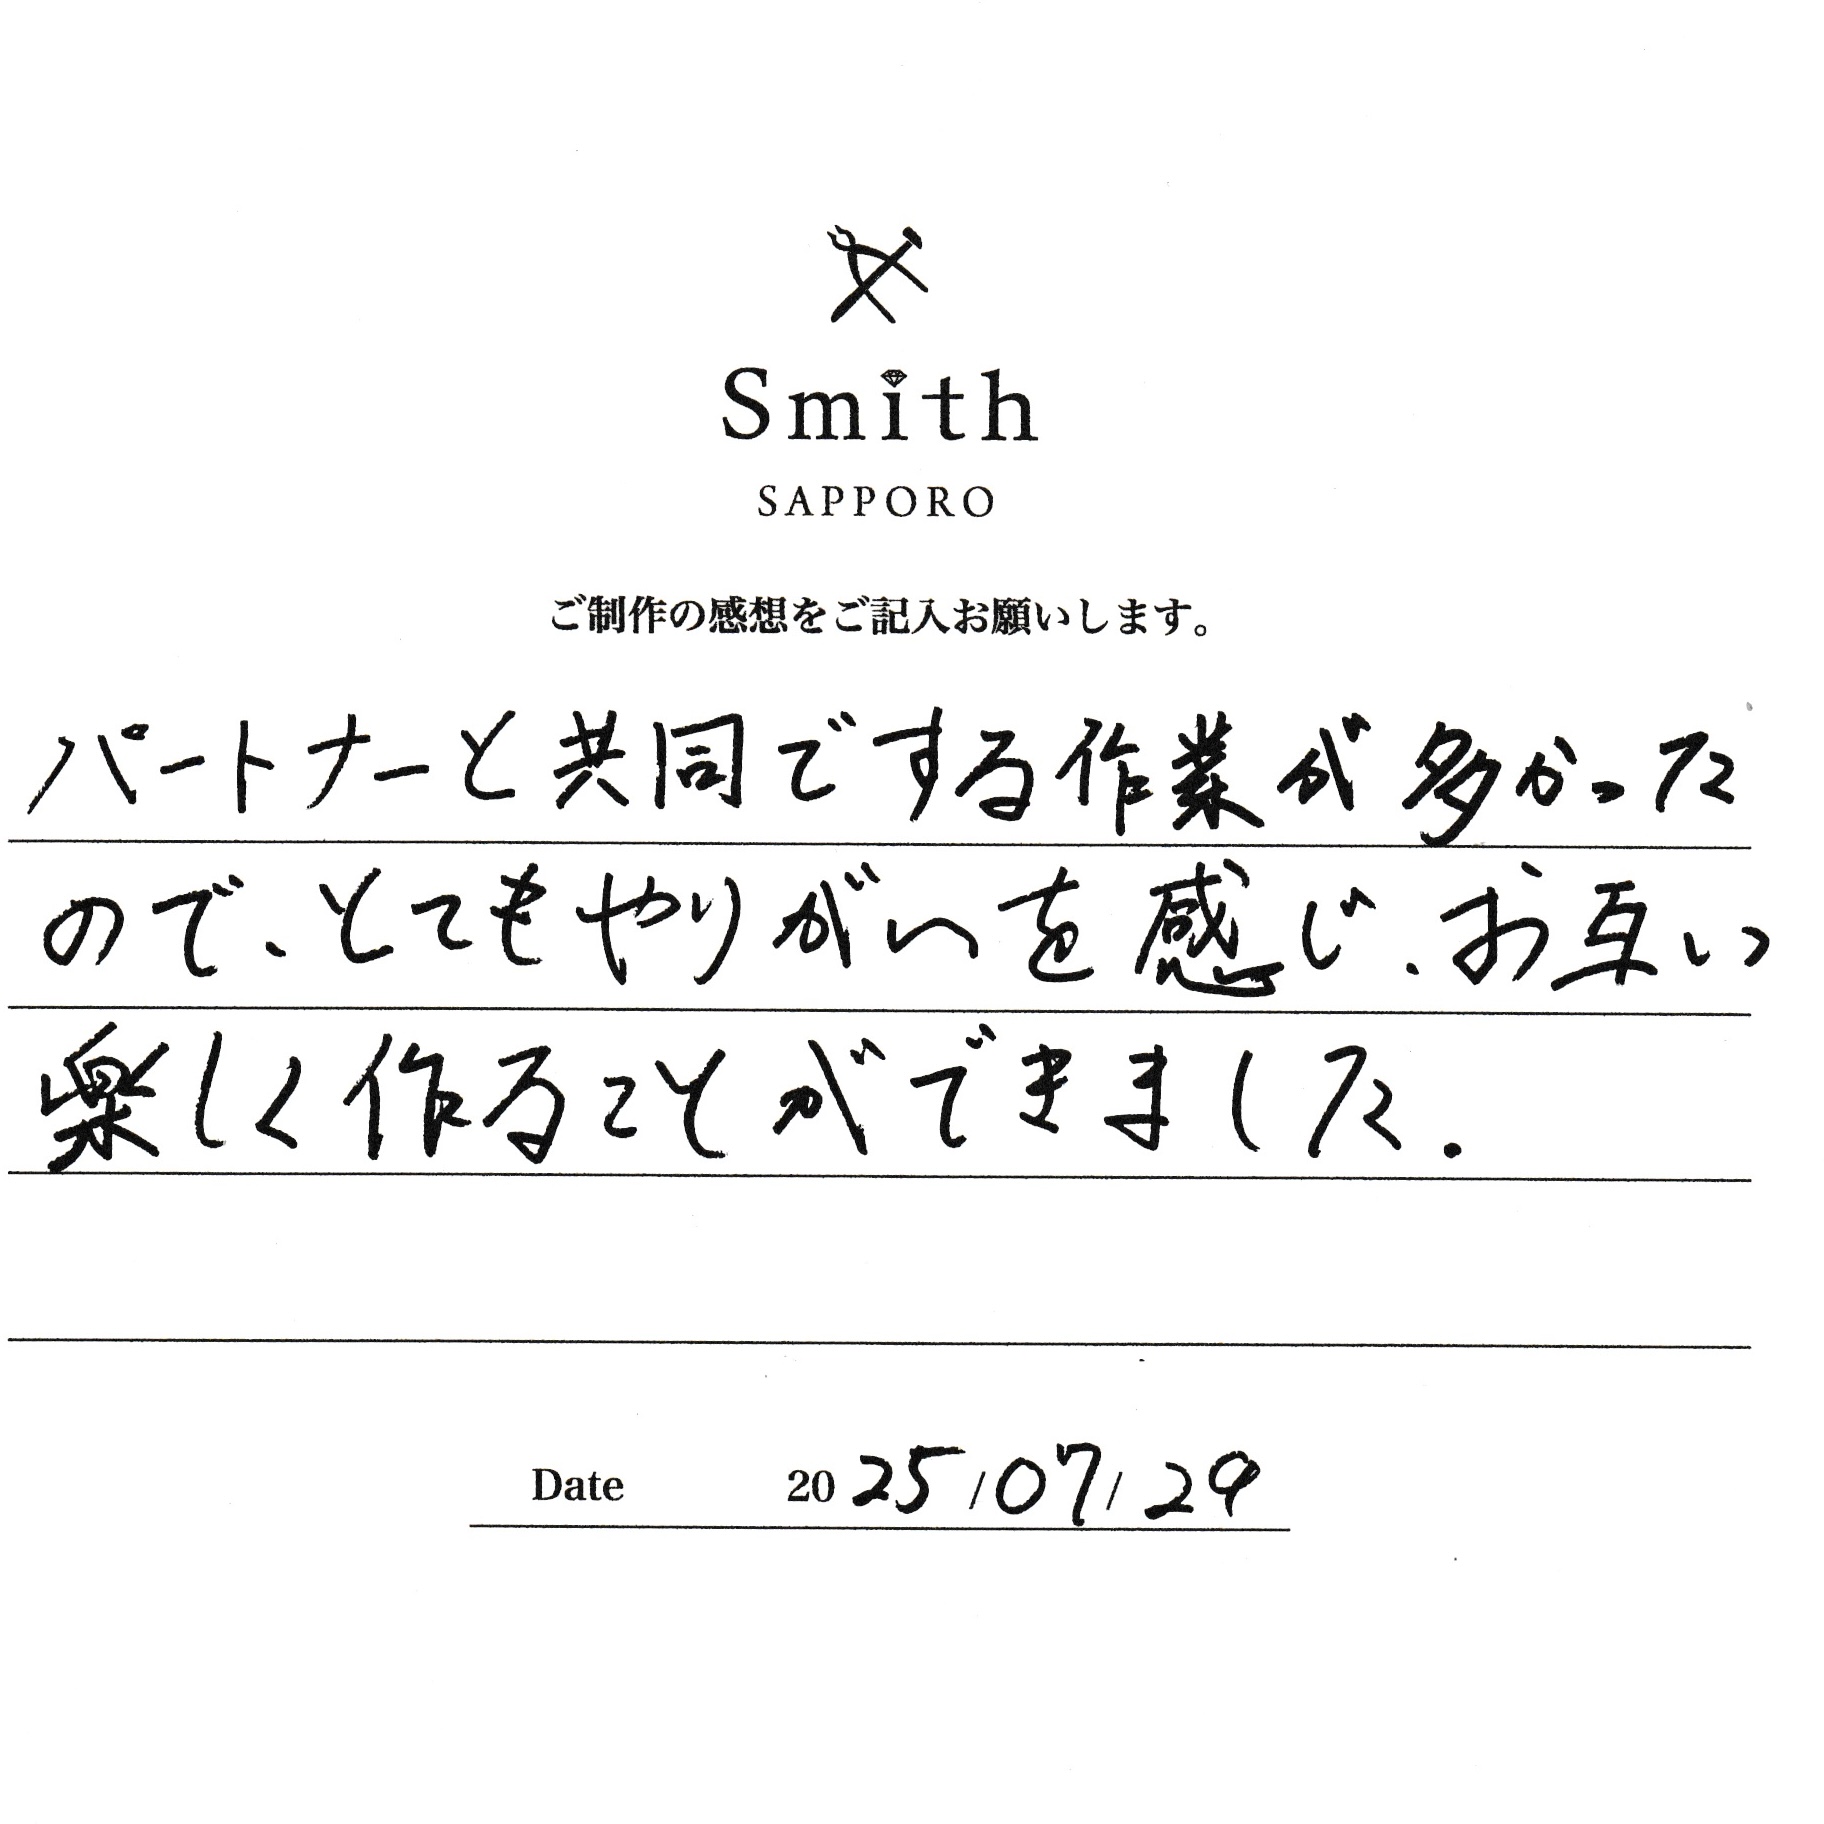 Smith
SAPPORO
ご制作の感想をご記入お願いします。
パートナーと共同でする作業が多かった
ので、とてもやりがいを感じ、お互い
楽しく作ることができました.
Date 2025/07/29